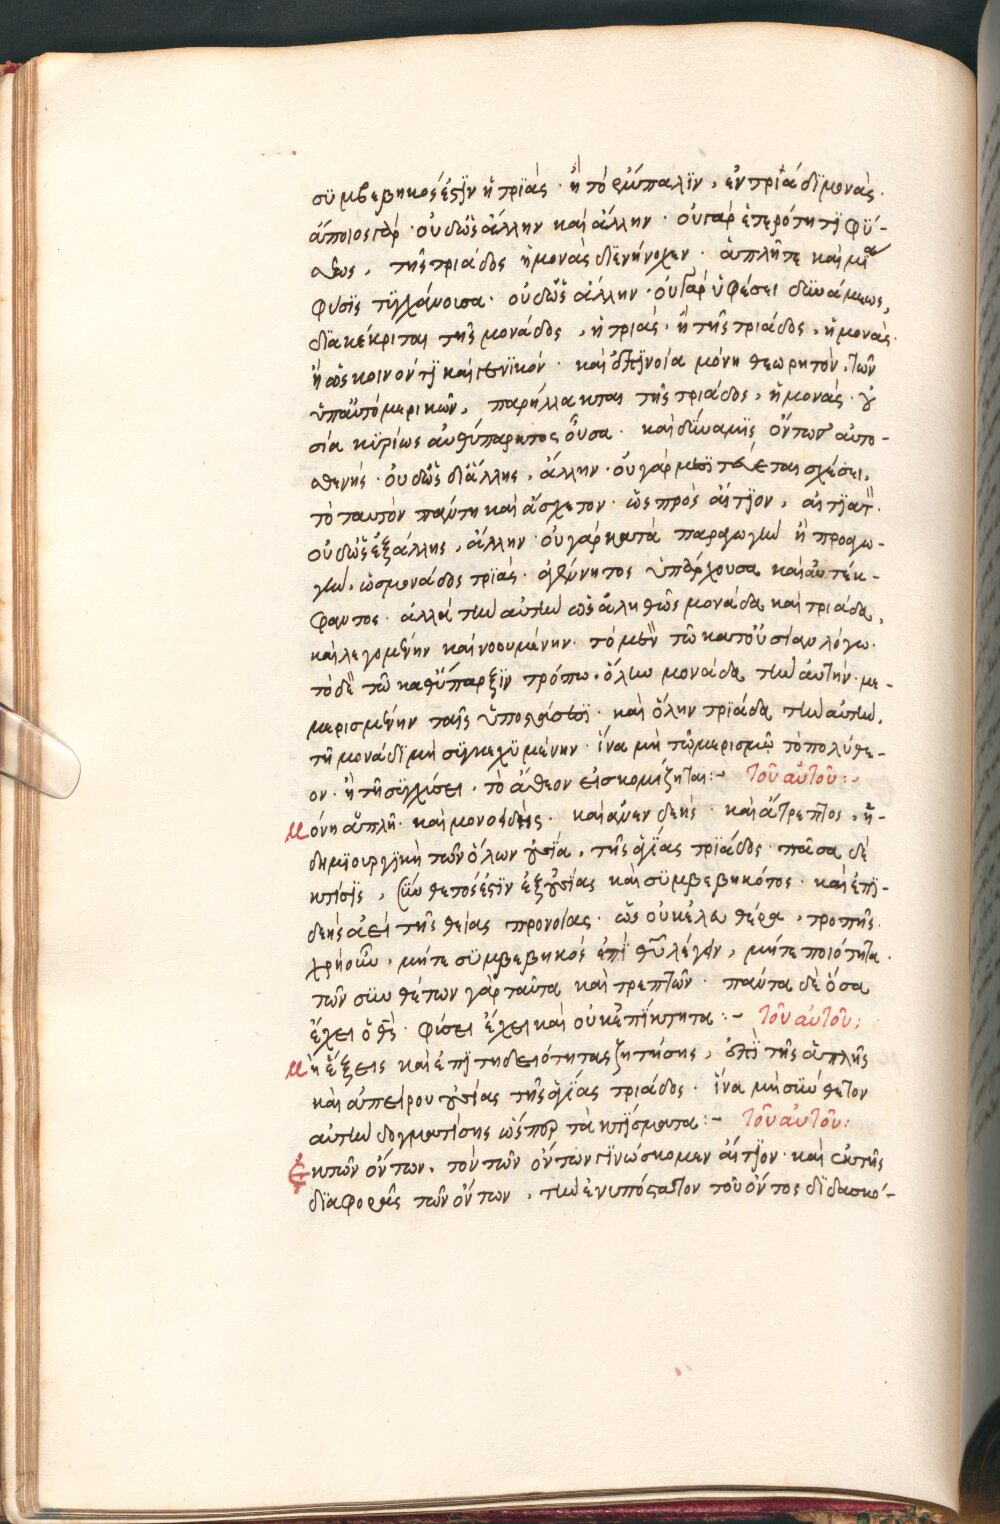 συμβεβηκός ἐστϊν ἡ τρϊὰς · ἢ τὸ ἐμπαλϊν, ἐν τριάδϊ μονὰς ·
ἄποιος γὰρ · οὐδ' ὡς ἄλλην καὶ ἄλλην · οὐ γὰρ ἑτερότητϊ φύ-
σεως, τῆς τριάδος ἡ μονὰς διενήνοχεν · ἁπλῆ τε καὶ μία
φύσϊς τϋγχάνουσα · οὐδ' ὡς ἄλλην · οὐ γὰρ ὑφέσει δϋνάμεως,
δϊακέκριται τῆς μονάδος, ἡ τριὰς · ἢ τῆς τριάδος, ἡ μονὰς ·
ἢ ὡς κοινόν τϊ καὶ γενϊκόν · καὶ ἐπϊνοία μόνη θεωρητὸν, τῶν
ὑπ' αὐτὸ μερικῶν, παρήλλακται τῆς τριάδος, ἡ μονὰς · οὐ
σία κϋρίως αὐθύπαρκτος οὖσα · καὶ δύναμϊς ὄντως αὐτο-
σθενής · οὐδ' ὡς δι' ἄλλης, ἄλλην · οὐ γὰρ μεσϊτεύεται σχέσει,
τὸ ταυτὸν πάντη καὶ ἄσχετον · ὡς πρὸς αἴτϊον, αἰτϊατ ·
οὐδ' ὡς ἐξ ἄλλης, ἄλλην · οὐ γὰρ κατὰ παραγωγὴν ἡ προαγω-
γὴν, ὡς μονάδος τρϊὰς · ἀγέννητος ὑπάρχουσα καὶ αὐτέκ-
φαντος · ἀλλὰ τὴν αὐτὴν ὡς ἀληθῶς μονάδα καὶ τριάδα,
καὶ λεγομένην καὶ νοουμένην · τὸ μὲν τῶ κατ' οὐσίαν λόγω ·
τὸ δὲ τῶ καθ' ὕπαρξϊν τρόπω · ὅλην μονάδα τὴν αὐτήν · με-
μερισμένην ταῖς ὑποστάσεσϊ · καὶ ὅλην τρϊάδα τὴν αὐτὴν,
τῆ μονάδϊ μὴ σϋγκεχϋμένην · ἵνα μὴ τῶ μερισμῶ τὸ πολύθε-
ον · ἢ τῆ σϋγχύσει · τὸ ἄθεον εἰσκομίζηται :- τοῦ αὐτοῦ :-
Μόνη ἁπλῆ · καὶ μονοειδὴς · καὶ ἀνενδεὴς · καὶ ἄτρεπτος, ἡ-
δημϊουργϊκὴ τῶν ὅλων οὐσία, τῆς ἁγϊας τρϊάδος · πᾶσα δὲ
κτίσϊς, σύνθετος ἐστϊν ἐξ οὐσίας καὶ σϋμβεβηκότος · καὶ ἐπϊ-
δεὴς ἀεὶ τῆς θείας προνοίας · ὡς οὐκ ἐλευθέρα, τροπῆς ·
χρὴ οὖν, μήτε σϋμβεβηκὸς ἐπὶ θεοῦ λέγειν, μήτε ποιότητα ·
τῶν σϋνθέτων γὰρ ταῦτα καὶ τρεπτῶν · πάντα δὲ ὅσα
ἔχει ὁ θς · φύσει ἔχει καὶ οὐκ ἐπϊκτητα :- τοῦ αὐτοῦ :
Μὴ ἕξεις καὶ ἐπϊτηδειότητας ζητήσης, ἐπὶ τῆς ἁπλῆς
καὶ ἀπείρου οὐσίας τῆς ἁγϊας τριάδος · ἵνα μὴ σϋνθετον
αὐτὴν δογματίσης ὥσπερ τὰ κτϊσματα :- τοῦ αὐτοῦ :
Ἐκ τῶν ὄντων, τὸν τῶν ὄντων γϊνώσκομεν αἴτϊον · καὶ ἐκ τῆς
δϊαφορᾶς τῶν ὄντων, τὴν ἐνυπόστατον τοῦ ὄντος δϊδασκό-